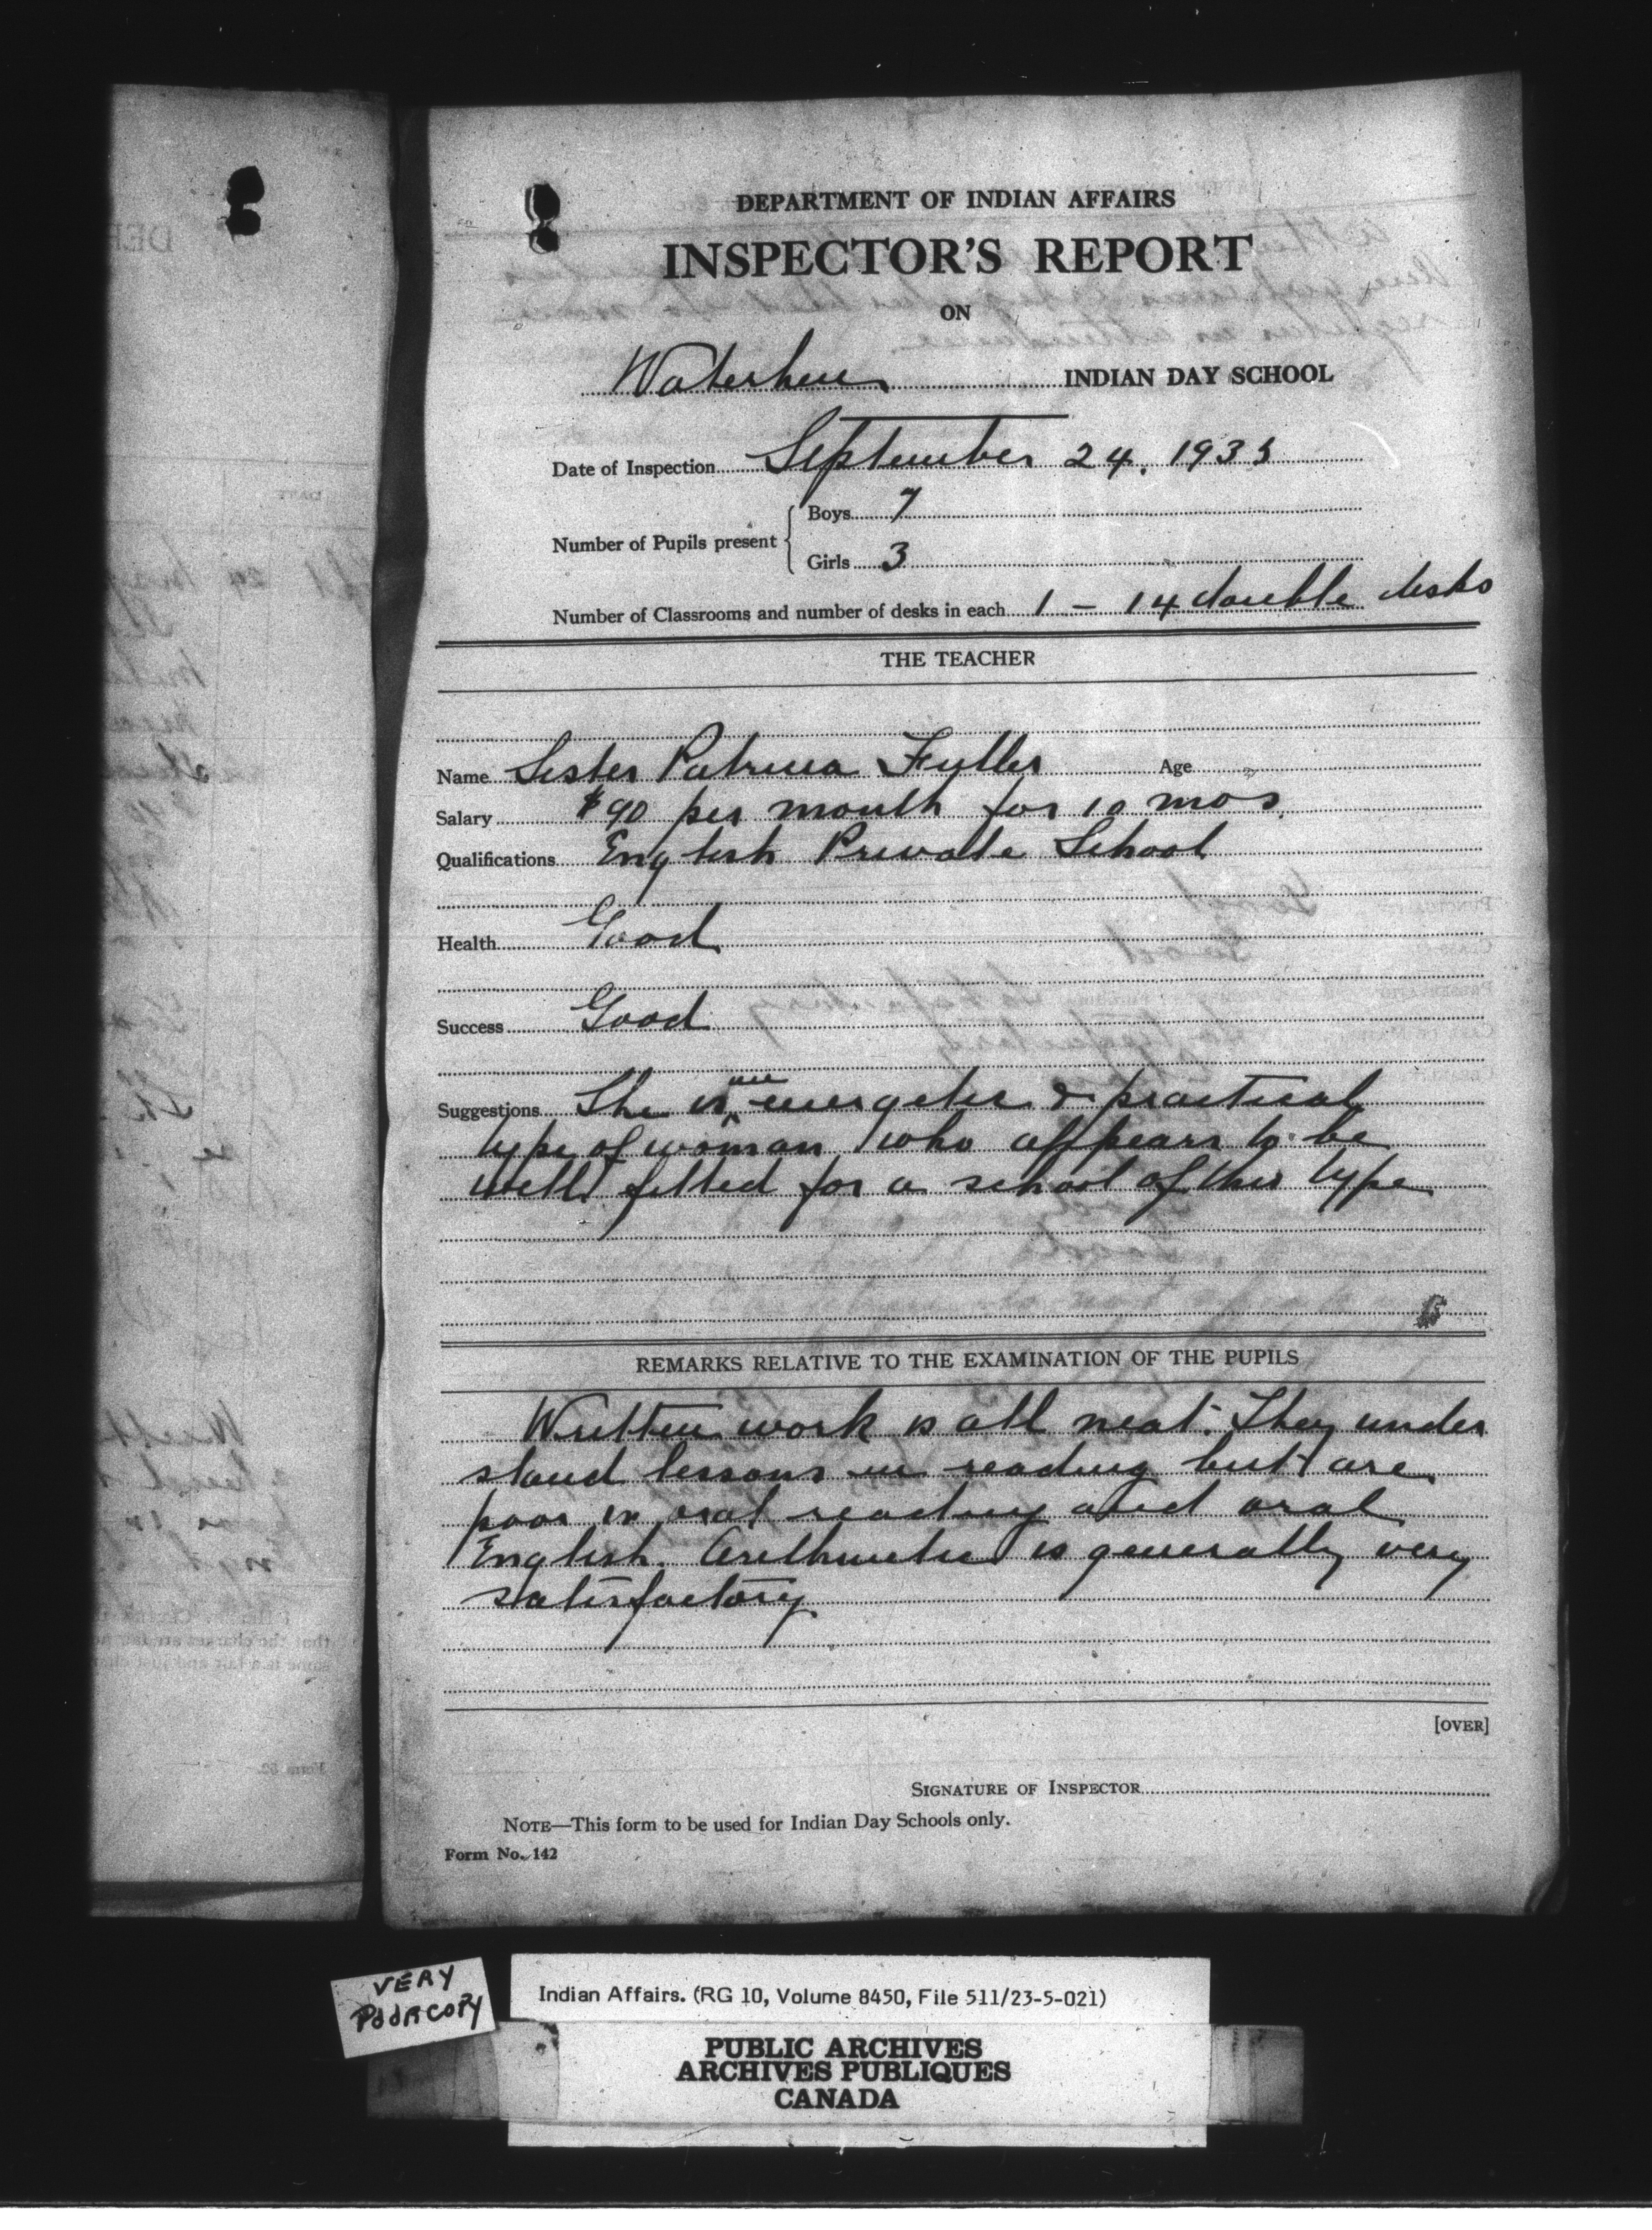 DEPARTMENT OF INDIAN AFFAIRS
INSPECTOR'S REPORT
ON
Waterhen INDIAN DAY SCHOOL
Date of Inspection September 24, 1935
Number of Pupils present
Boys 7
Girls 3
Number of Classrooms and number of desks in each 1 - 14 double desks
THE TEACHER
Name Sister Patricia Fuller Age
Salary $90 per month for 10 mos.
Qualifications English Private School
Health Good
Success Good
Suggestions She is an energetic & practical
type of woman who appears to be
well fitted for a school of this type
REMARKS RELATIVE TO THE EXAMINATION OF THE PUPILS
Written work is all neat. They under
stand lessons in reading but are
poor in oral reading and oral
English. Arithmetic is generally very
satisfactory
[OVER]
SIGNATURE OF INSPECTOR
NOTE—This form to be used for Indian Day Schools only.
Form No. 142
VERY
POOR COPY
Indian Affairs. (RG 10, Volume 8450, File 511/23-5-021)
PUBLIC ARCHIVES
ARCHIVES PUBLIQUES
CANADA